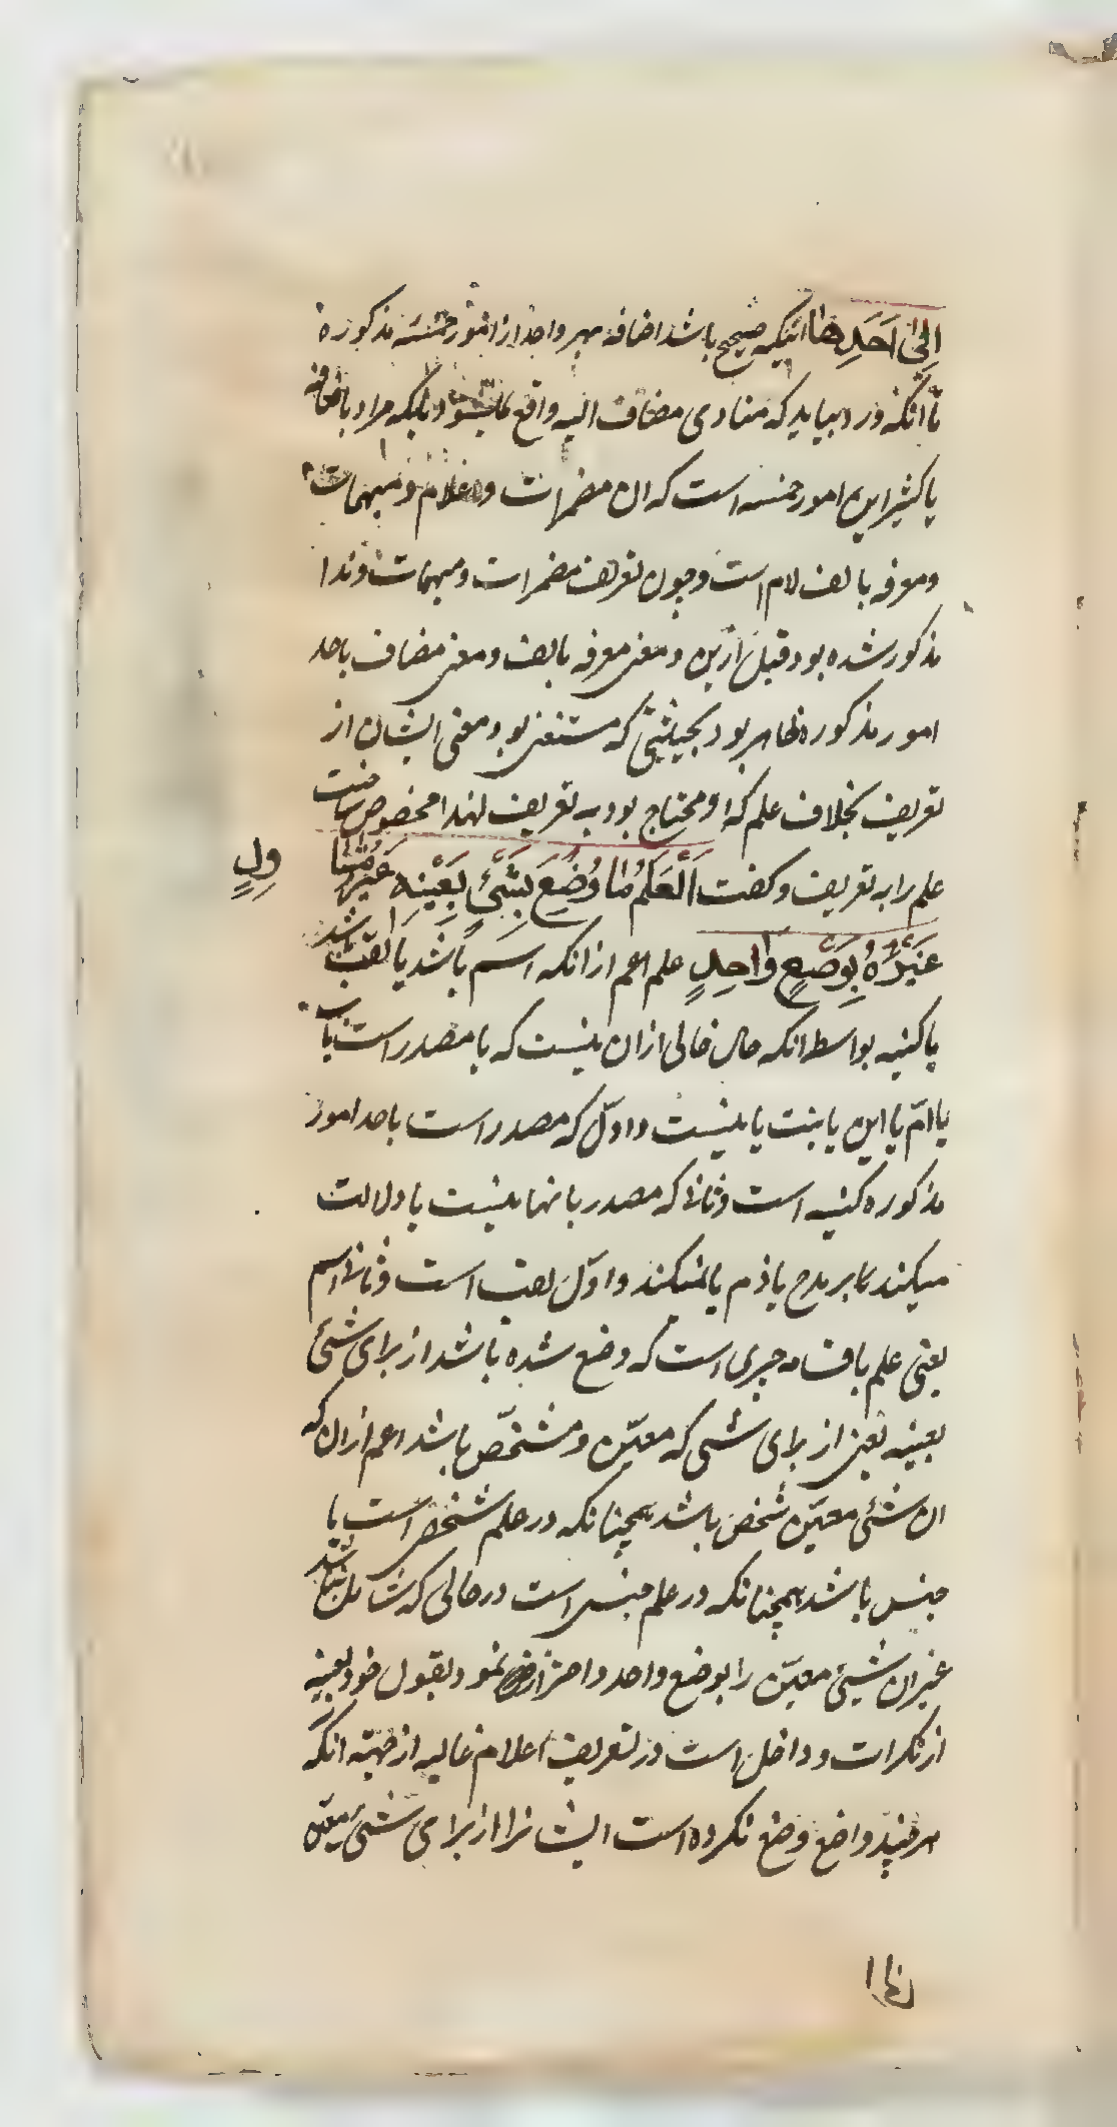 اِلیٰ اَحَدِها اینکه صحیح باشد اضافه بهر واحد از امور خمسه مذکوره
تا انکه ورد بیاید که منادی مضاف الیه واقع نمیشود بلکه مراد باضافه
باکثر این امور خمسه است که ان مضمرات و اعلام و مبهمات
و معرفه بالف لام است و چون تعریف مضمرات و مبهمات و ندا
مذکور شده بود قبل ازین و معنی معرفه بالف و معنی مضاف باحد
امور مذکوره ظاهر بود بحیثیتی که مستغنی بود معنی ایشان از
تعریف بخلاف علم که او محتاج بود به تعریف لهذا مخصوص ساخت
علم را به تعریف و کفت اَلْعَلَمُ ما وُضِعَ لِشَیْءٍ بِعَیْنِه غَیْرَ مُتَنا
وِلٍ
غَیْرَهُ بِوَضْعٍ وَاحِدٍ علم اعم از انکه اسم باشد یا لقب باشد
یا کنیه بواسطه انکه حال خالی از ان نیست که یا مصدر است باب
یا امّ یا ابن یا بنت یا نیست و اوّل که مصدر است باحد امور
مذکوره کنیه است و ثانی که مصدر بانها نیست یا دلالت
میکند بر مدح یا ذم یا نمیکند و اوّل لقب است و ثانی اسم
یعنی علم باقسامه چیزی است که وضع شده باشد از برای شیئ
بعینه یعنی از برای شیئ که معیّن و مشخّص باشد اعم از ان که
ان شیئ معیّن شخص باشد همچنانکه در علم شخص است یا
جنس باشد همچنانکه در علم جنس است در حالی که شامل نباشد
غیر ان شیئ معیّن را بوضع واحد و احتراز نمود بقول خود بعینه
از نکرات و داخل است در تعریف اعلام غالبه از جهته انکه
هر چند واضع وضع نکرده است ایشانرا از برای شیئ معیّن